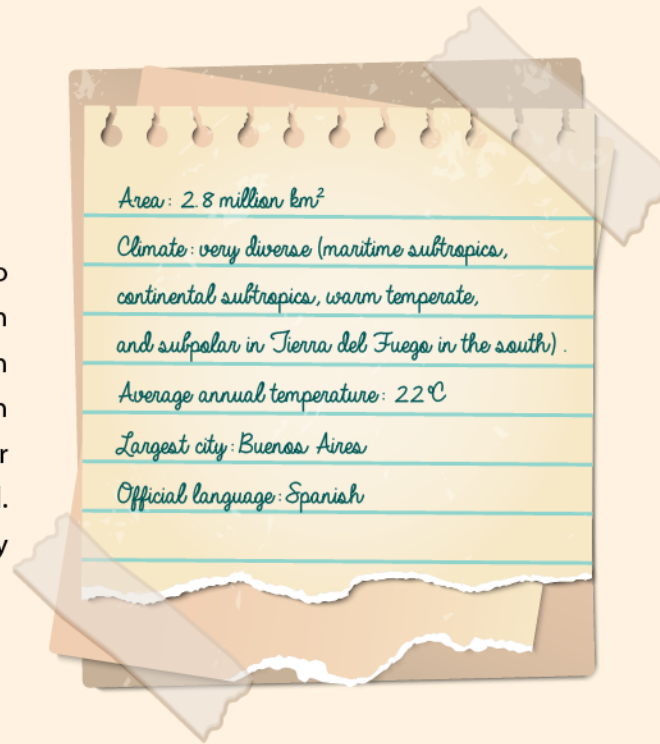 Area: 2.8 million km²
Climate: very diverse (maritime subtropics,
continental subtropics, warm temperate,
and subpolar in Tierra del Fuego in the south).
Average annual temperature: 22°C
Largest city: Buenos Aires
Official language: Spanish